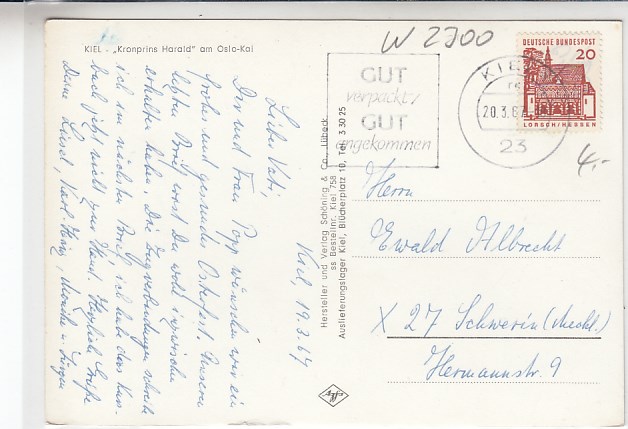 KIEL - „Kronprins Harald" am Oslo-Kai
W 2700
DEUTSCHE BUNDESPOST
20
LORSCH/HESSEN
KIEL
20.3.67
23
GUT
verpackt/
GUT
angekommen
4,-
Kiel, 19.3.67
Lieber Vati!
Dir und Frau Popp wünschen wir ein
frohes und gesundes Osterfest. Unseren
letzten Brief wirst Du wohl inzwischen
erhalten haben. Die Zugverbindungen schreibe
ich im nächsten Brief, ich habe das Kurs-
buch jetzt nicht zur Hand. Herzliche Grüße
Deine Liesel, Karl-Heinz, Monika u. Jürgen
Hersteller und Verlag Schöning & Co., Lübeck
ss Bestellnr. Kiel 758
Auslieferungslager Kiel, Blücherplatz 10, Tel. 3 30 25
Herrn
Ewald Albrecht
X 27 Schwerin (Meckl.)
Hermannstr. 9